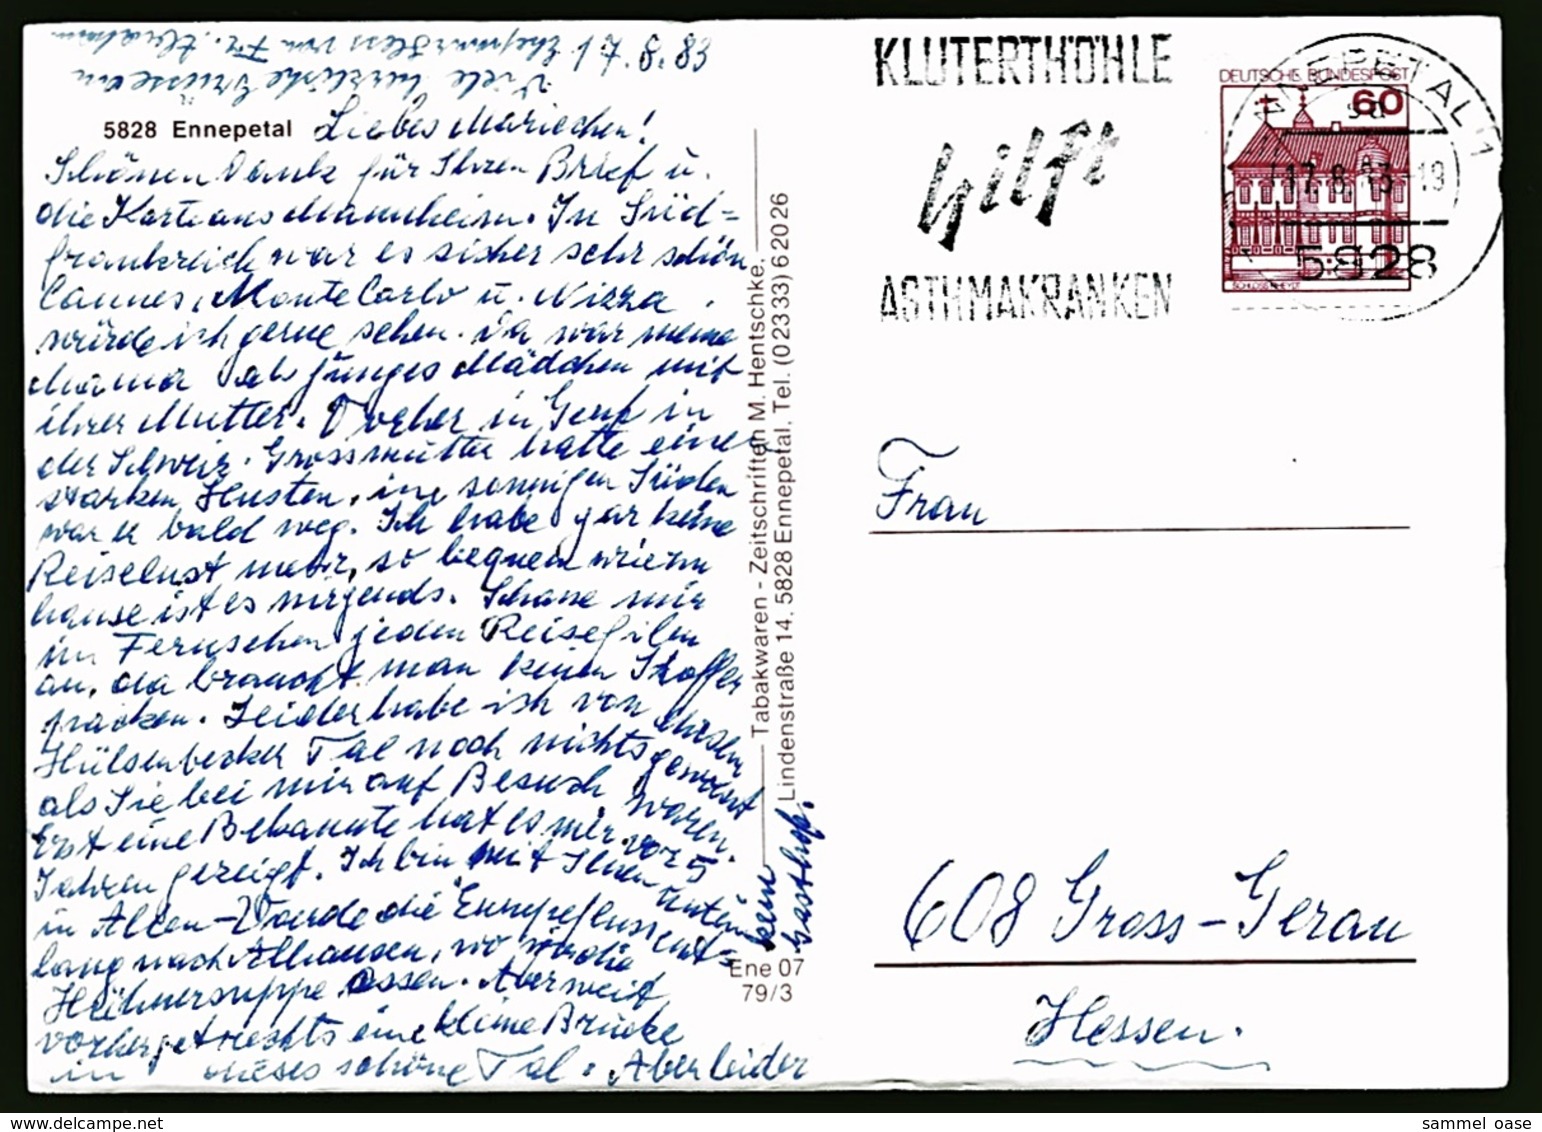 17.8.83
Viele herzliche Grüsse von
5828 Ennepetal Liebes Mariechen!
Schönen Dank für Ihren Brief u.
die Karte aus Mannheim. In Süd=
frankreich war es sicher sehr schön
Cannes, Monte Carlo u. Nizza
würde ich gerne sehen. Da war meine
Mama als junges Mädchen mit
ihrer Mutter. Vorher in Genf in
der Schweiz. Grossmutter hatte eine
starken Husten, im sonnigen Süden
war er bald weg. Ich habe gar keine
Reiselust mehr, so bequem wie im
hause ist es nirgends. Schaue mir
im Fernsehen jeden Reisefilm
an, da braucht man keinen Koffer
packen. Leider habe ich von diesem
Hülsenbecker Tal noch nichts gewusst
als Sie bei mir auf Besuch waren.
Erst eine Bekannte hat es mir vor 5
Jahren gezeigt. Ich bin mit Ihnen unten
in Alten-Voerde die Ennepe flussent=
lang nach Ahlhausen, wo wir die
Hühnersuppe assen. Aber weit
vorher geht rechts eine kleine Brücke
in dieses schöne Tal. Aber leider
kein
Gasthof.
Tabakwaren - Zeitschriften M. Hentschke,
Lindenstraße 14, 5828 Ennepetal, Tel. (02333) 62026
Ene 07
79/3
KLUTERTHÖHLE
hilft
ASTHMAKRANKEN
DEUTSCHE BUNDESPOST
60
SCHLOSS RHEYDT
ENNEPETAL 1
sa
17.8.83-19
5828
Frau
608 Gross-Gerau
Hessen.
sammel oase